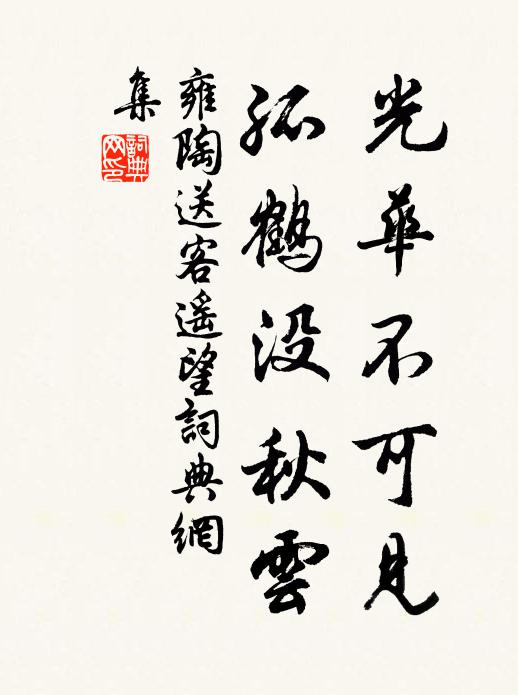 光華不可見
孤鶴没秋雲
雍陶送客遙望詞典網
集
詞典網印